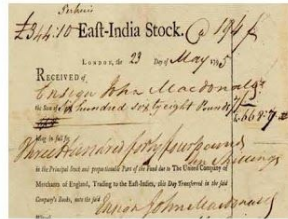 Perkins
£344:10 East-India Stock. @ 194 ƒ
LONDON, the 23 Day of May 1795
RECEIVED of
Ensign John Macdonald
the Sum of Six hundred sixty eight Pounds 7/
£668-7-
Being in full for
Three Hundred forty four pounds
ten Shillings
in the Principal Stock and proportional Part of the Fund due to The United Company of
Merchants of England, Trading to the East-Indies, this Day Transferred in the said
Company's Books, unto the said
Ensign John Macdonald